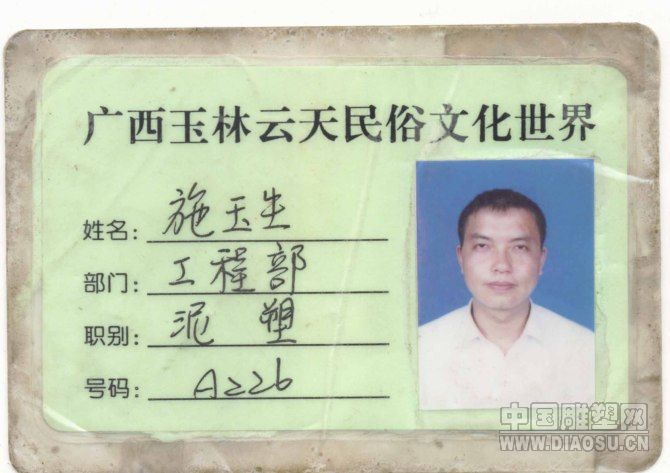 广西玉林云天民俗文化世界
姓名: 施玉生
部门: 工程部
职别: 泥塑
号码: A226
中国雕塑网
WWW.DIAOSU.CN